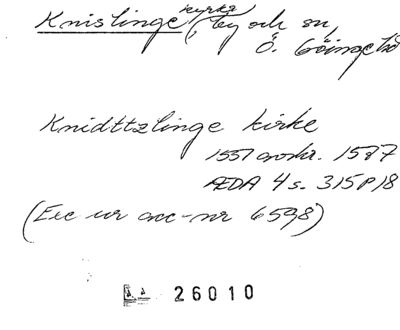 Knislinge kyrka, by och sn,
Ö. Göinge hd
Knidttzlinge kirke
1557 avskr. 1587
ÆDA 4 s. 315 P 18
(Exc ur acc-nr 6598)
26010